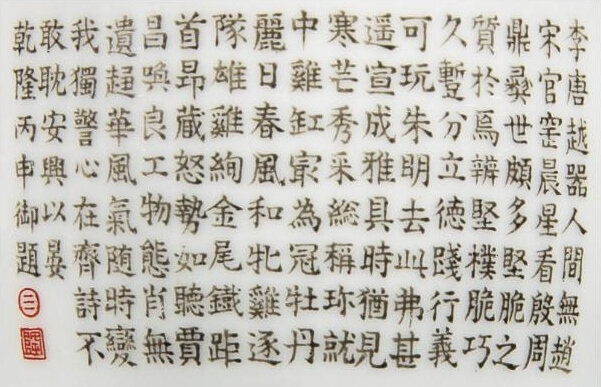 李唐越器人間無趙
宋官窰晨星看殷周
鼎彝世頗多堅脆之
質於焉辨堅樸脆巧
久蹔分立德踐行義
可玩朱明去此弗甚
遥宣成雅具時猶見
寒芒秀采總稱珎就
中雞缸㝡為冠牡丹
麗日春風和牝雞逐
隊雄雞絢金尾鐵距
首昂藏怒勢如聽賈
昌喚良工物態肖無
遺超華風氣随時變
我獨警心在齊詩不
敢耽安興以晏
乾隆丙申御題
☰
隆